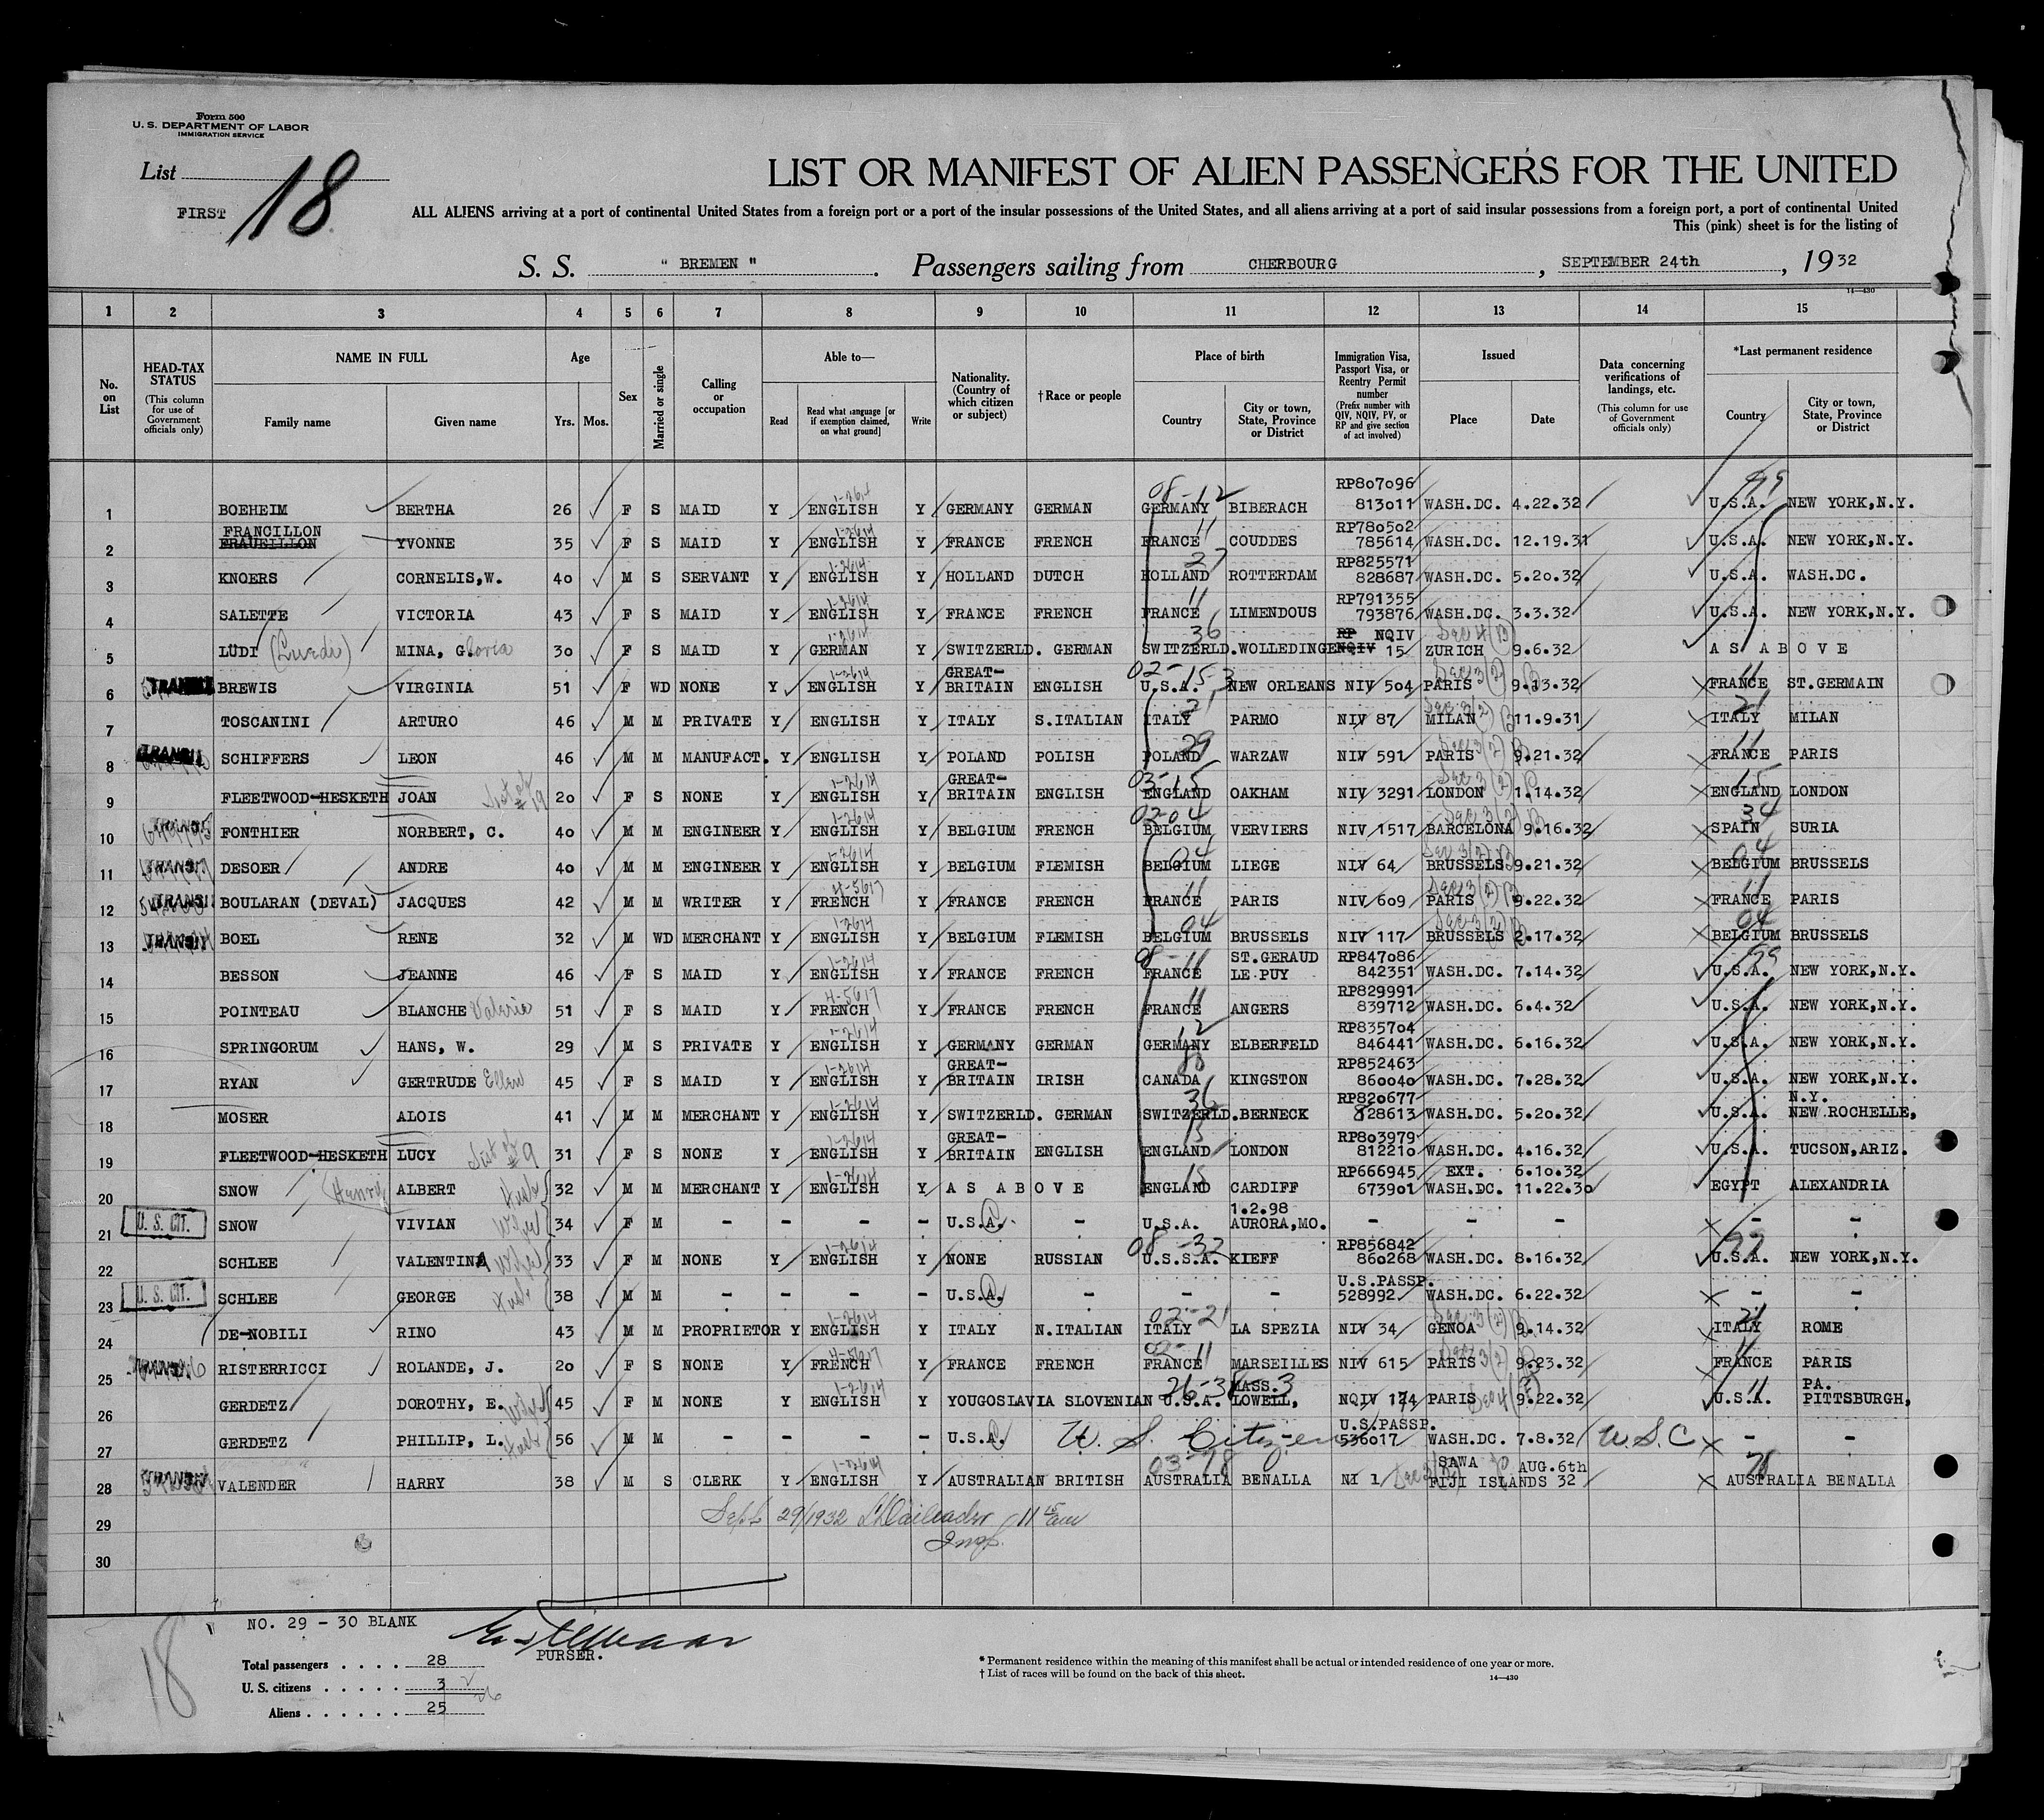 Form 500
U. S. DEPARTMENT OF LABOR
IMMIGRATION SERVICE
List 18
FIRST
LIST OR MANIFEST OF ALIEN PASSENGERS FOR THE UNITED
ALL ALIENS arriving at a port of continental United States from a foreign port or a port of the insular possessions of the United States, and all aliens arriving at a port of said insular possessions from a foreign port, a port of continental United
This (pink) sheet is for the listing of
S. S. " BREMEN ". Passengers sailing from CHERBOURG, SEPTEMBER 24th, 1932
14—430
1 2 3 4 5 6 7 8 9 10 11 12 13 14 15
No. on List
HEAD-TAX STATUS
(This column for use of Government officials only)
NAME IN FULL
Family name Given name
Age
Yrs. Mos.
Sex
Married or single
Calling or occupation
Able to—
Read Read what language [or if exemption claimed, on what ground] Write
Nationality. (Country of which citizen or subject)
†Race or people
Place of birth
Country City or town, State, Province or District
Immigration Visa, Passport Visa, or Reentry Permit number
(Prefix number with QIV, NQIV, PV, or RP and give section of act involved)
Issued
Place Date
Data concerning verifications of landings, etc.
(This column for use of Government officials only)
*Last permanent residence
Country City or town, State, Province or District
1 BOEHEIM BERTHA 26 F S MAID Y ENGLISH 1-2614 Y GERMANY GERMAN 08-12 GERMANY BIBERACH RP807096 813011 WASH.DC. 4.22.32 99 U.S.A. NEW YORK,N.Y.
2 FRANCILLON FRAUEILLON YVONNE 35 F S MAID Y ENGLISH 1-2614 Y FRANCE FRENCH 11 FRANCE COUDDES RP780502 785614 WASH.DC. 12.19.31 U.S.A. NEW YORK,N.Y.
3 KNOERS CORNELIS,W. 40 M S SERVANT Y ENGLISH 1-2614 Y HOLLAND DUTCH 27 HOLLAND ROTTERDAM RP825571 828687 WASH.DC. 5.20.32 U.S.A. WASH.DC.
4 SALETTE VICTORIA 43 F S MAID Y ENGLISH 1-2614 Y FRANCE FRENCH 11 FRANCE LIMENDOUS RP791355 793876 WASH.DC. 3.3.32 U.S.A. NEW YORK,N.Y.
5 LÜDI (Luedi) MINA, G.loria 30 F S MAID Y GERMAN 1-2614 Y SWITZERLD. GERMAN 36 SWITZERLD. WOLLEDINGE RP NQIV NQIV 15 Sec 4 (B) ZURICH 9.6.32 AS ABOVE
6 TRANSIT BREWIS VIRGINIA 51 F WD NONE Y ENGLISH 1-2614 Y GREAT-BRITAIN ENGLISH 02-15-3 U.S.A. NEW ORLEANS NIV 504 Sec 3(2) B PARIS 9.13.32 11 FRANCE ST.GERMAIN
7 TOSCANINI ARTURO 46 M M PRIVATE Y ENGLISH Y ITALY S.ITALIAN 21 ITALY PARMO NIV 87 Sec 3(2) B MILAN 11.9.31 21 ITALY MILAN
8 TRANSIT SCHIFFERS LEON 46 M M MANUFACT. Y ENGLISH Y POLAND POLISH 29 POLAND WARZAW NIV 591 Sec 3(2) B PARIS 9.21.32 11 FRANCE PARIS
9 FLEETWOOD-HESKETH JOAN Sist of #19 20 F S NONE Y ENGLISH 1-2614 Y GREAT-BRITAIN ENGLISH 03-15 ENGLAND OAKHAM NIV 3291 Sec 3(2) B LONDON 1.14.32 15 ENGLAND LONDON
10 TRANSIT FONTHIER NORBERT, C. 40 M M ENGINEER Y ENGLISH 1-2614 Y BELGIUM FRENCH 02-04 BELGIUM VERVIERS NIV 1517 Sec 3(2) B BARCELONA 9.16.32 34 SPAIN SURIA
11 TRANSIT DESOER ANDRE 40 M M ENGINEER Y ENGLISH 1-2614 Y BELGIUM FLEMISH 04 BELGIUM LIEGE NIV 64 Sec 3(2) B BRUSSELS 9.21.32 04 BELGIUM BRUSSELS
12 TRANSIT BOULARAN (DEVAL) JACQUES 42 M M WRITER Y FRENCH 4-5617 Y FRANCE FRENCH 11 FRANCE PARIS NIV 609 Sec 3(2) B PARIS 9.22.32 11 FRANCE PARIS
13 TRANSIT BOEL RENE 32 M WD MERCHANT Y ENGLISH 1-2614 Y BELGIUM FLEMISH 04 BELGIUM BRUSSELS NIV 117 Sec 3(2) B BRUSSELS 2.17.32 04 BELGIUM BRUSSELS
14 BESSON JEANNE 46 F S MAID Y ENGLISH 1-2614 Y FRANCE FRENCH 08-11 FRANCE ST.GERAUD LE PUY RP847086 842351 WASH.DC. 7.14.32 99 U.S.A. NEW YORK,N.Y.
15 POINTEAU BLANCHE Valerie 51 F S MAID Y FRENCH 4-5617 Y FRANCE FRENCH 11 FRANCE ANGERS RP829991 839712 WASH.DC. 6.4.32 U.S.A. NEW YORK,N.Y.
16 SPRINGORUM HANS, W. 29 M S PRIVATE Y ENGLISH 1-2614 Y GERMANY GERMAN 12 GERMANY ELBERFELD RP835704 846441 WASH.DC. 6.16.32 U.S.A. NEW YORK,N.Y.
17 RYAN GERTRUDE Ellen 45 F S MAID Y ENGLISH 1-2614 Y GREAT-BRITAIN IRISH 80 CANADA KINGSTON RP852463 860040 WASH.DC. 7.28.32 U.S.A. NEW YORK,N.Y.
18 MOSER ALOIS 41 M M MERCHANT Y ENGLISH 1-2614 Y SWITZERLD. GERMAN 36 SWITZERLD. BERNECK RP820677 828613 WASH.DC. 5.20.32 U.S.A. N.Y. NEW ROCHELLE,
19 FLEETWOOD-HESKETH LUCY Sist of #9 31 F S NONE Y ENGLISH 1-2614 Y GREAT-BRITAIN ENGLISH 15 ENGLAND LONDON RP803979 812210 WASH.DC. 4.16.32 U.S.A. TUCSON,ARIZ.
20 SNOW (Henry) ALBERT Husb 32 M M MERCHANT Y ENGLISH 1-2614 Y AS ABOVE 15 ENGLAND CARDIFF RP666945 673901 EXT. 6.10.32 WASH.DC. 11.22.30 EGYPT ALEXANDRIA
21 U. S. CIT. SNOW VIVIAN Wife 34 F M - - - U.S.A. - U.S.A. 1.2.98 AURORA,MO. - - - - -
22 SCHLEE VALENTINA Wife 33 F M NONE Y ENGLISH 1-2614 Y NONE RUSSIAN 08-32 U.S.S.A. KIEFF RP856842 860268 WASH.DC. 8.16.32 99 U.S.A. NEW YORK,N.Y.
23 U. S. CIT. SCHLEE GEORGE Husb 38 M M - - - - U.S.A. - - - U.S.PASSP. 528992 WASH.DC. 6.22.32 - -
24 DE-NOBILI RINO 43 M M PROPRIETOR Y ENGLISH 1-2614 Y ITALY N.ITALIAN 02-21 ITALY LA SPEZIA NIV 34 Sec 3(2) B GENOA 9.14.32 21 ITALY ROME
25 RISTERRICCI ROLANDE, J. 20 F S NONE Y FRENCH 4-5617 Y FRANCE FRENCH 02-11 FRANCE MARSEILLES NIV 615 Sec 3(2) B PARIS 9.23.32 11 FRANCE PARIS
26 GERDETZ DOROTHY, E. Wife 45 F M NONE Y ENGLISH 1-2614 Y YOUGOSLAVIA SLOVENIAN U.S.A. MASS. LOWELL, NQIV 124 PARIS 9.22.32 U.S.A. PA. PITTSBURGH,
27 GERDETZ PHILLIP, L. Husb 56 M M - - - - U.S.A. U. S. Citizen U.S.PASSP. 536017 WASH.DC. 7.8.32 U S C - -
28 VALENDER HARRY 38 M S CLERK Y ENGLISH Y AUSTRALIAN BRITISH 03-78 AUSTRALIA BENALLA NI 1 SAWA FIJI ISLANDS AUG.6th 32 78 AUSTRALIA BENALLA
29 Sept 29/1932 11 45 am
Insp.
30
NO. 29 - 30 BLANK
PURSER.
18
Total passengers . . . . 28
U. S. citizens . . . . . 3
Aliens . . . . . . 25
* Permanent residence within the meaning of this manifest shall be actual or intended residence of one year or more.
† List of races will be found on the back of this sheet.
14—430